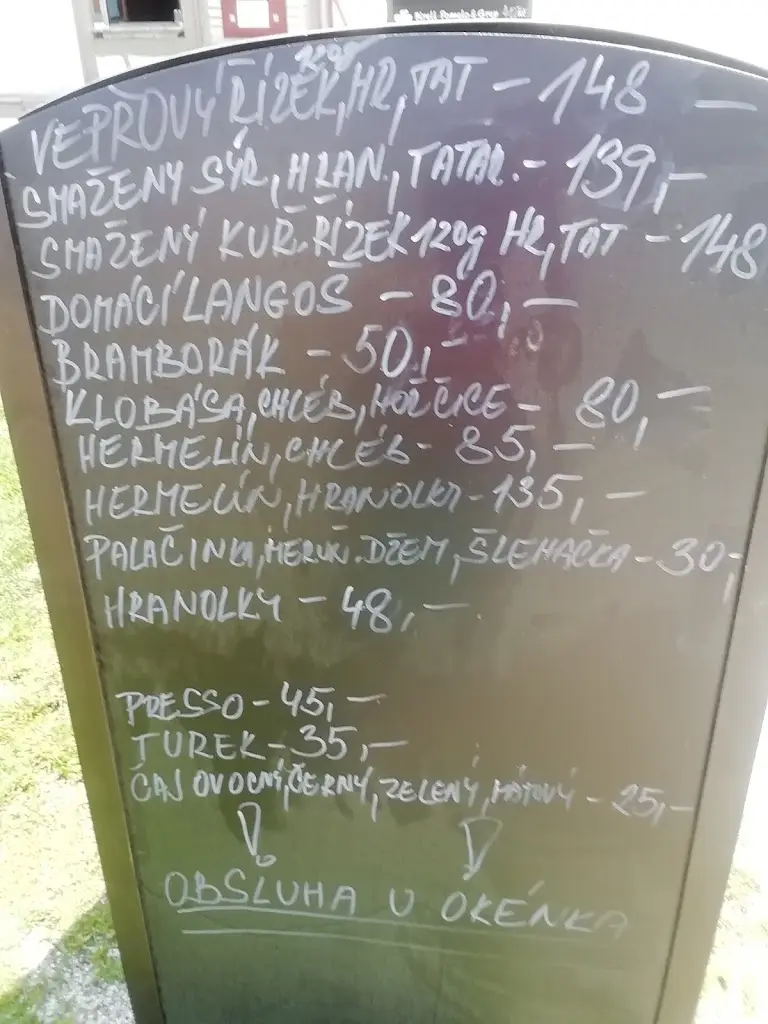 120g
VEPŘOVÝ ŘÍZEK, HR, TAT - 148 -
SMAŽENÝ SÝR, HRAN., TATAR. - 139,-
SMAŽENÝ KUŘ. ŘÍZEK 120g HR, TAT - 148
DOMÁCÍ LANGOŠ - 80,-
BRAMBORÁK - 50,-
KLOBÁSA, CHLÉB, HOŘČICE - 80,-
HERMELÍN, CHLÉB - 85,-
HERMELÍN, HRANOLKY - 135,-
PALAČINKA, MERUŇ. DŽEM, ŠLEHAČKA - 30,-
HRANOLKY - 48,-
PRESSO - 45,-
TUREK - 35,-
ČAJ OVOCNÝ, ČERNÝ, ZELENÝ, MÁTOVÝ - 25,-
! !
OBSLUHA U OKÉNKA